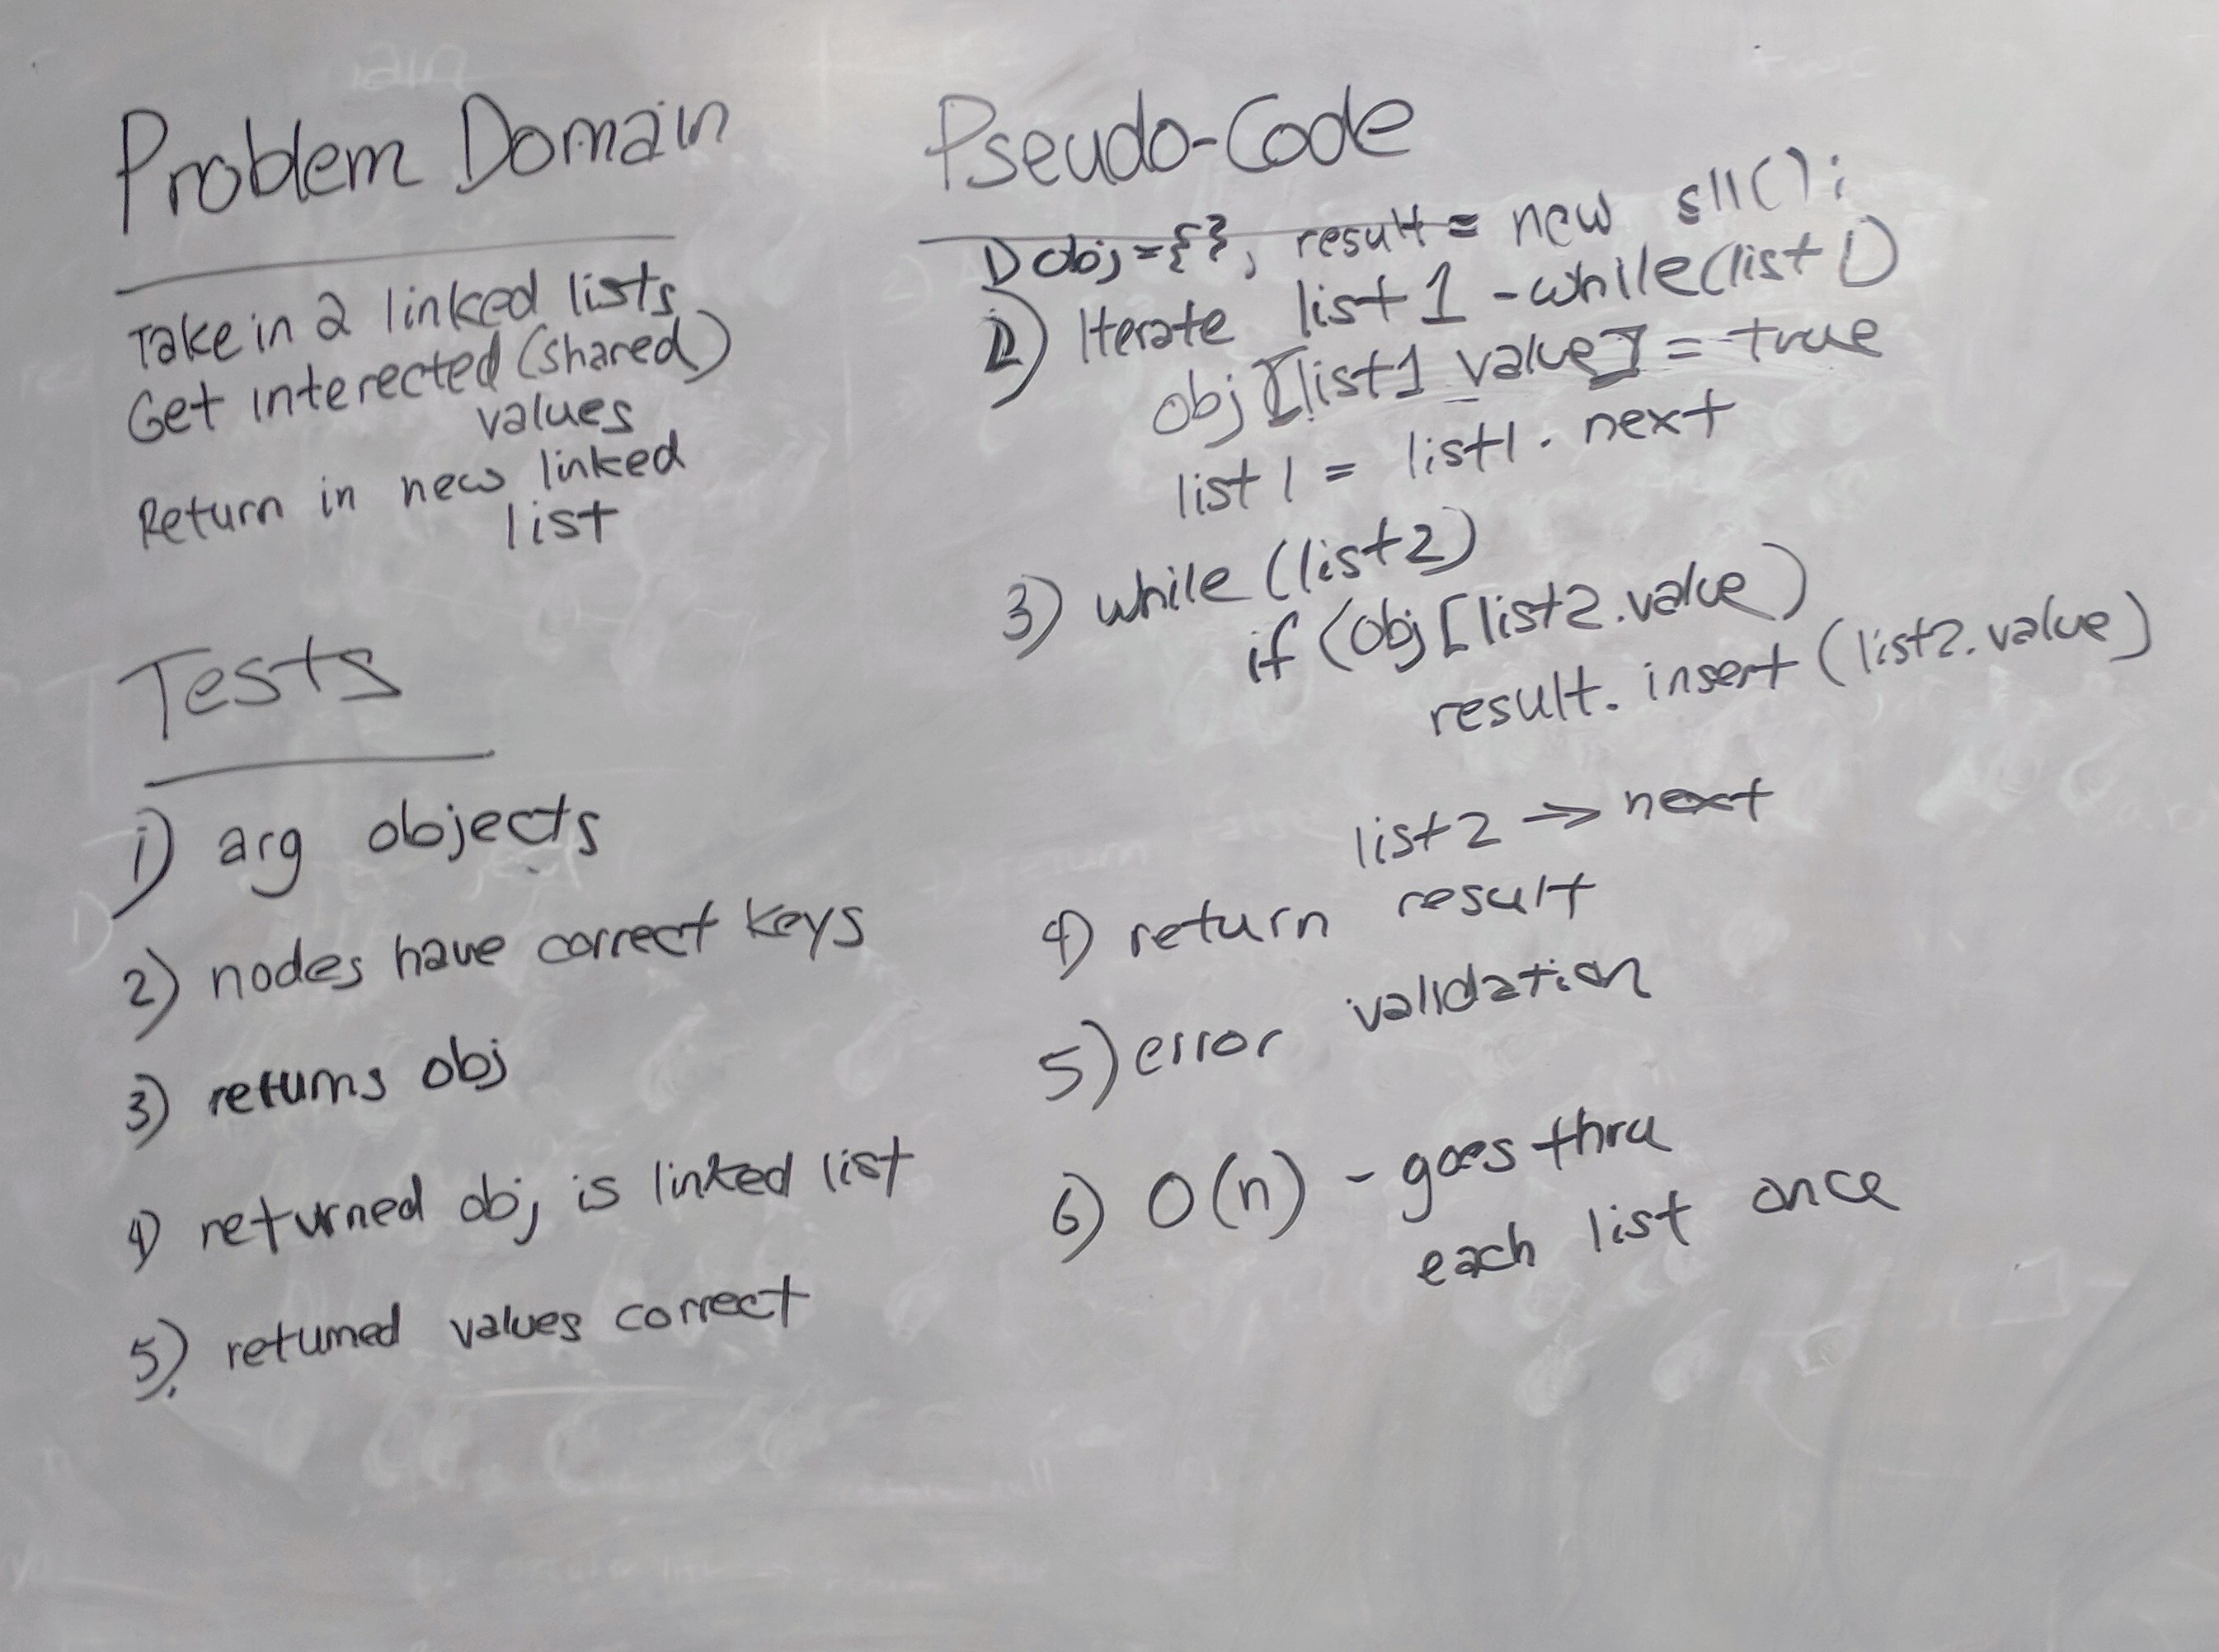 Problem Domain
Take in 2 linked lists
Get interected (shared)
values
Return in new linked
list
Tests
1) arg objects
2) nodes have correct keys
3) returns obj
4) returned obj is linked list
5) returned values correct
Pseudo-Code
1) obj={}, result = new sll();
2) Iterate list 1 - while(list 1)
obj[list1 value] = true
list 1 = list1. next
3) while (list2)
if (obj[list2.value)
result. insert (list2.value)
list2 → next
4) return result
5) error validation
6) O(n) - goes thru
each list once